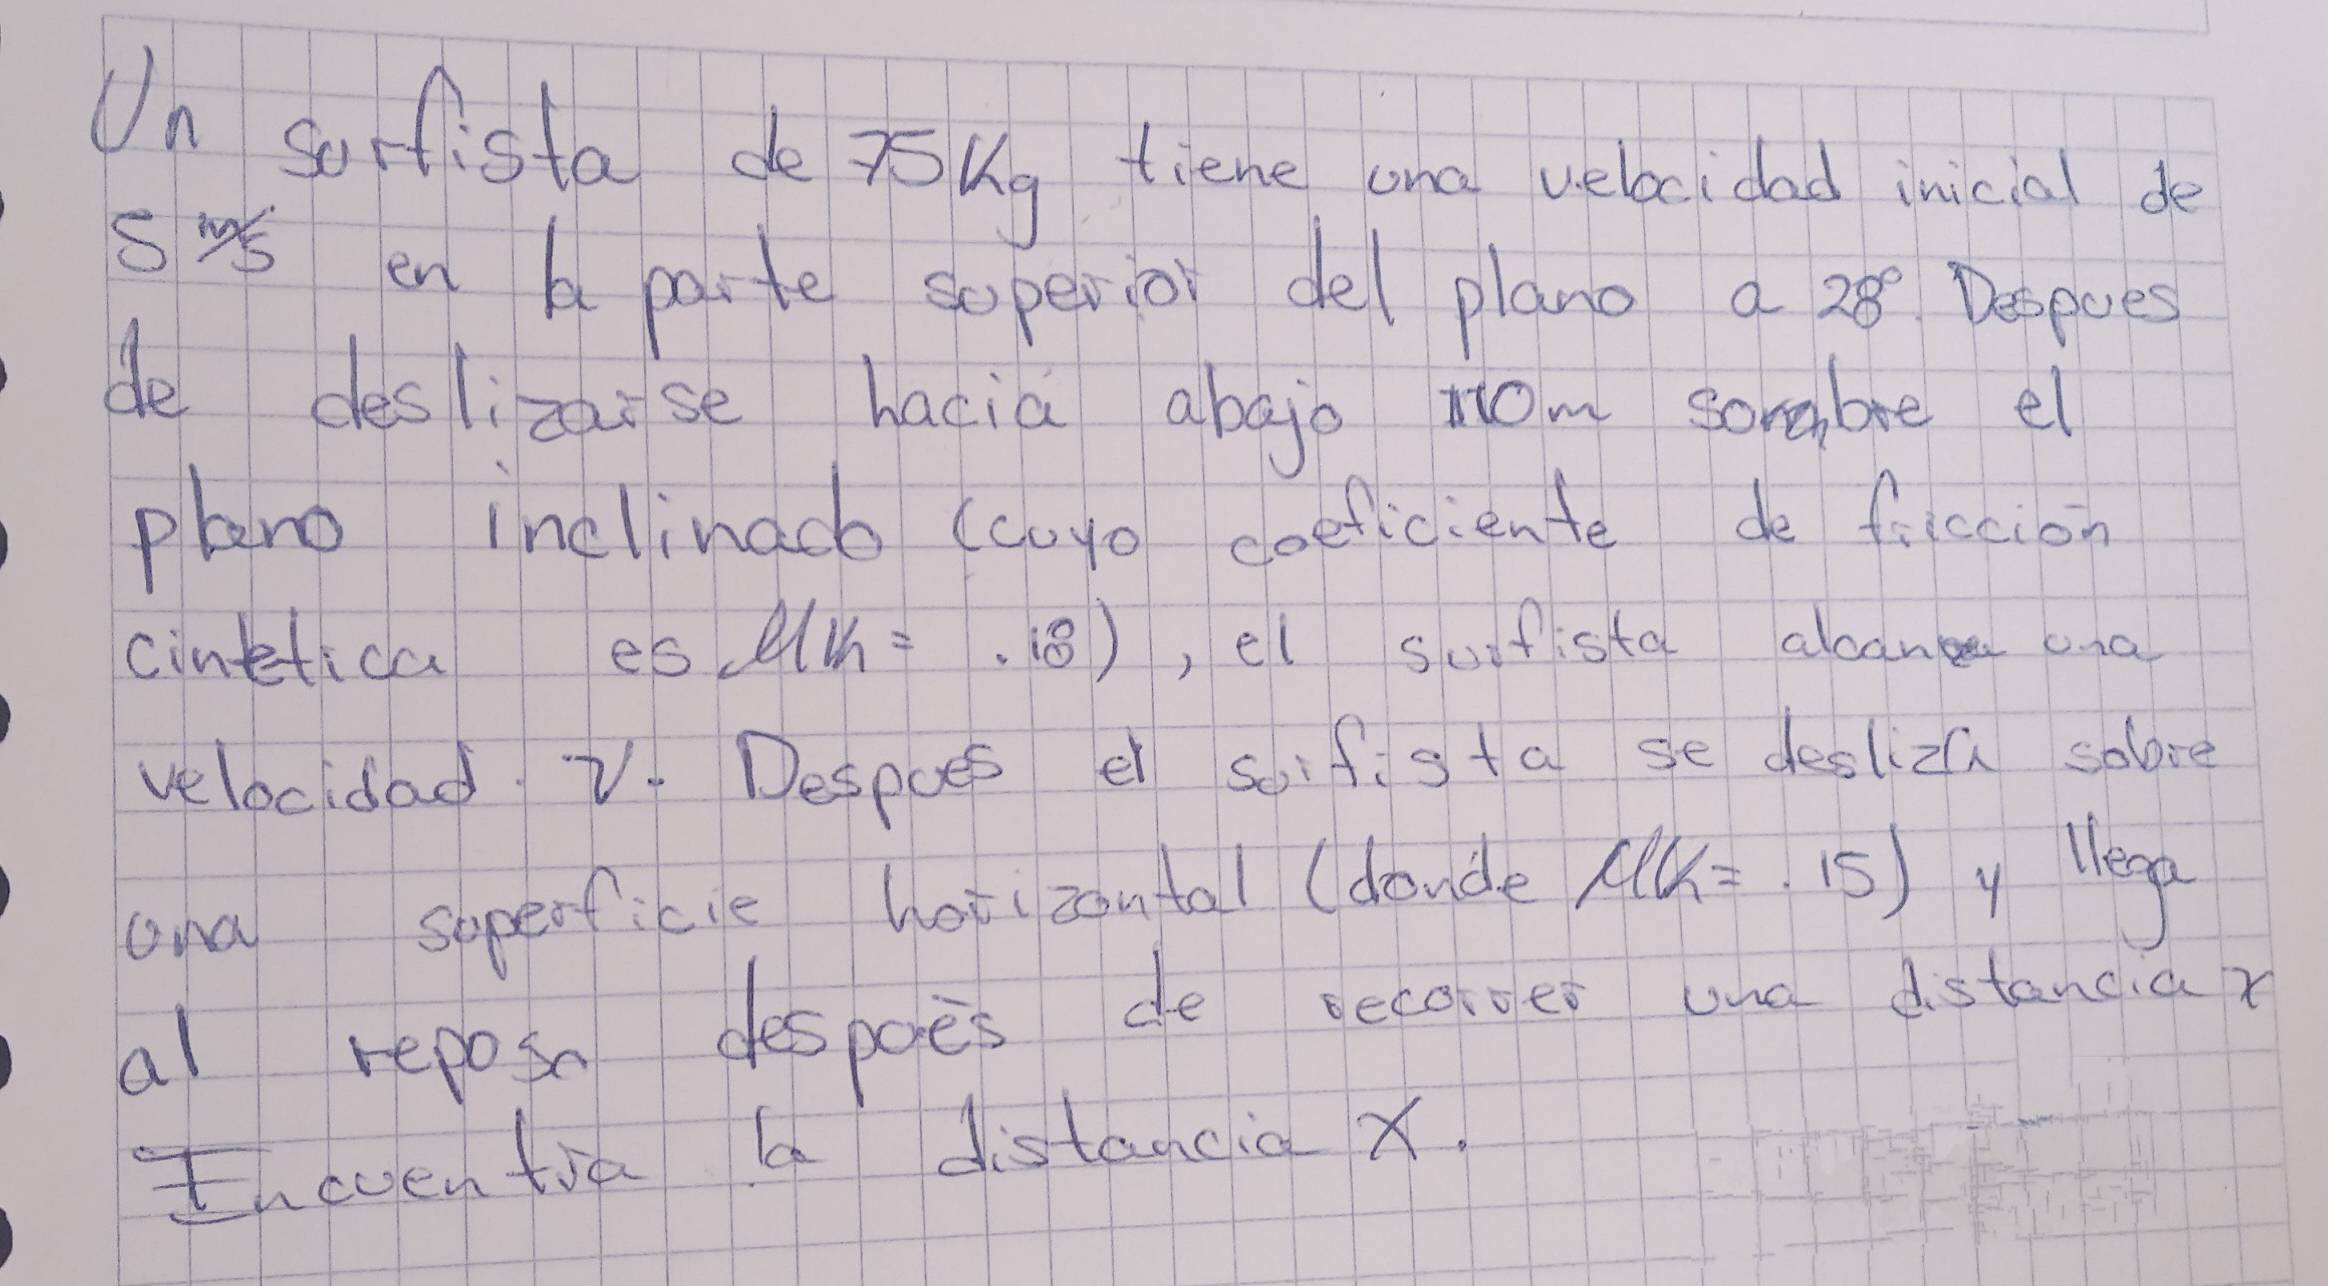 Un surfista de 75Kg tiene una velocidad inicial de
5 m/s en la parte superior del plano a 28°. Despues
de deslizarse hacia abajo 110m sobre el
plano inclinado (cuyo coeficiente de fricción
cinética es μk = .18), el surfista alcanza una
velocidad v. Despues el surfista se desliza sobre
una superficie horizontal (donde μk = .15) y llega
al reposo después de recorrer una distancia x
Encuentra la distancia X.